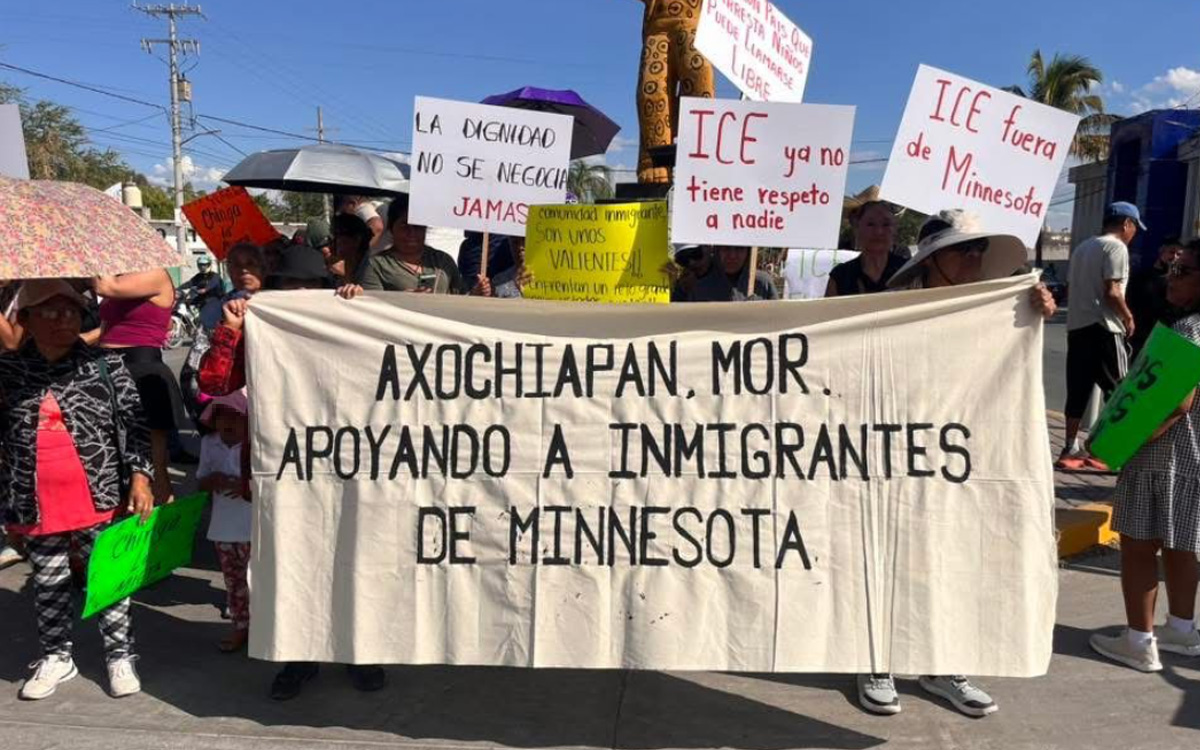 PAIS QUE
ARRESTA NIÑOS
PUEDE LLAMARSE
LIBRE
LA DIGNIDAD
NO SE NEGOCIA
JAMAS
ICE ya no
tiene respeto
a nadie
ICE fuera
de Minnesota
comunidad inmigrante
SON UNOS
VALIENTES!!
enfrentan un reto grande
Chinga
la
ICE
AXOCHIAPAN, MOR.
APOYANDO A INMIGRANTES
DE MINNESOTA
Chinga
la